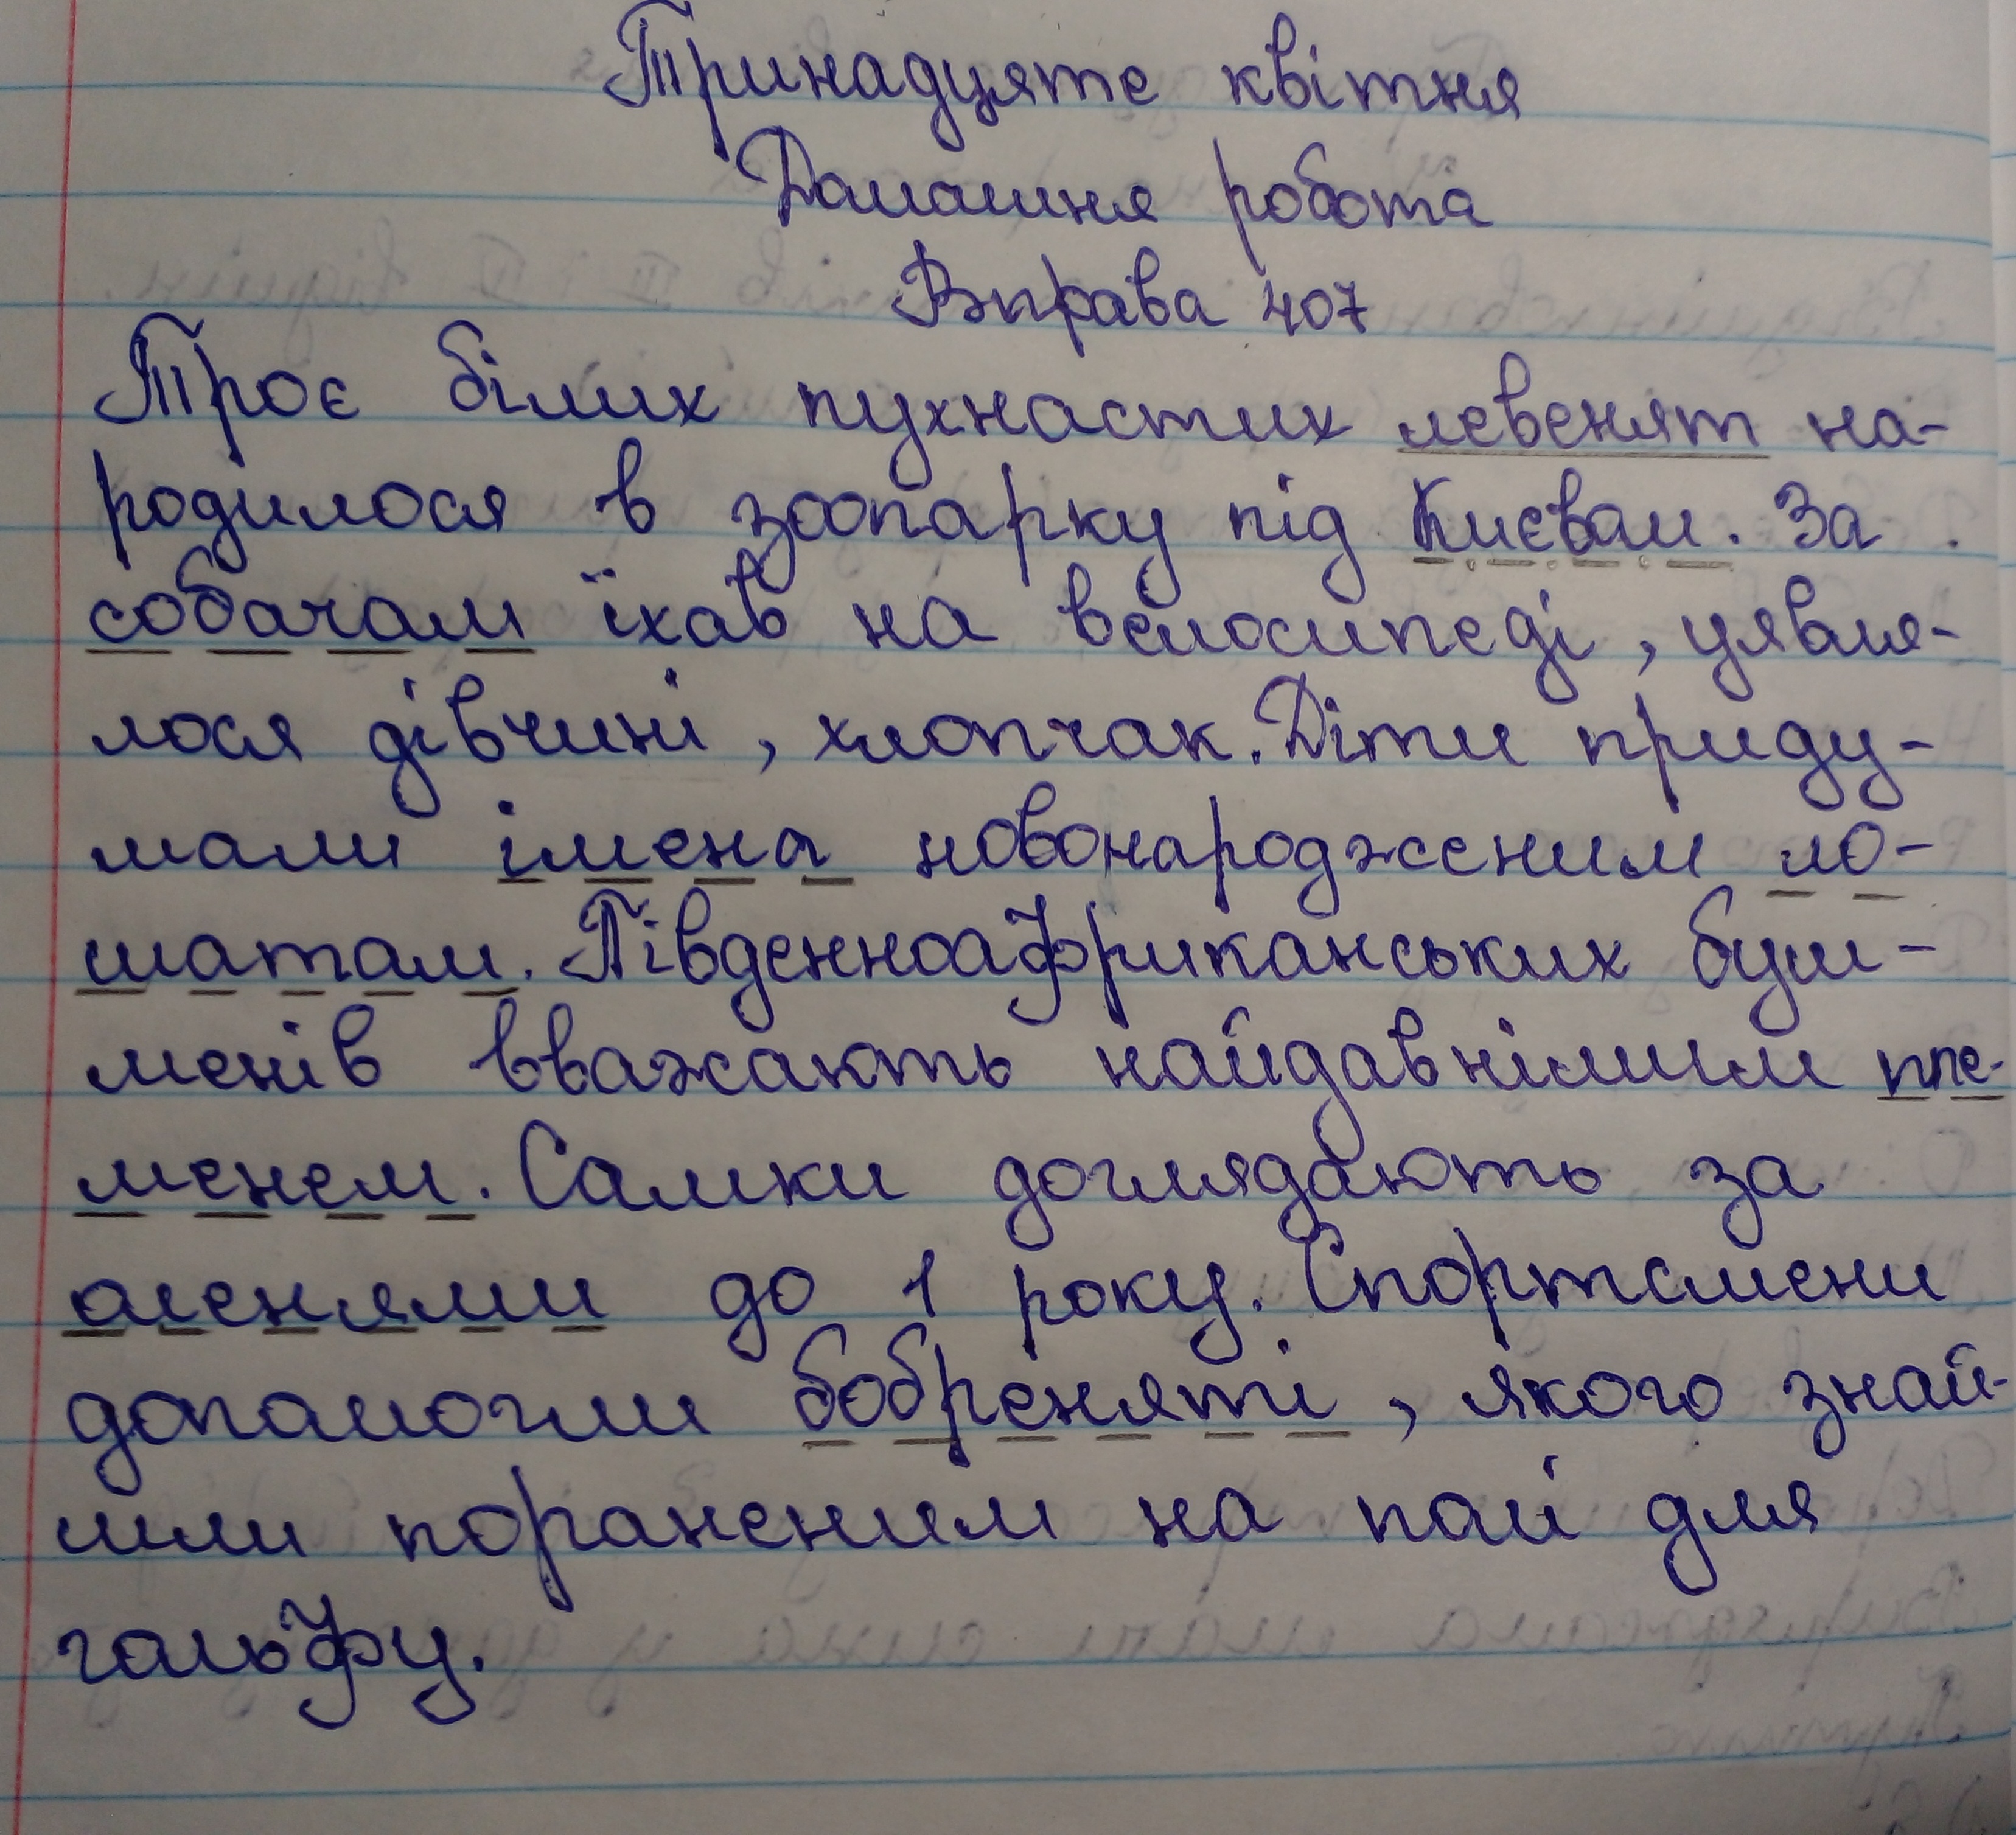 Тринадцяте квітня
Домашня робота
Вправа 407
Троє білих пухнастих левенят на-
родилося в зоопарку під Києвом. За
собачам їхав на велосипеді, уявля-
лося дівчині, хлопчак. Діти приду-
мали імена новонародженим ло-
шатам. Південноафриканських буш-
менів вважають найдавнішим пле-
менем. Самки доглядають за
оленями до 1 року. Спортсмени
допомогли бобреняті, якого знай-
шли пораненим на полі для
гольфу.